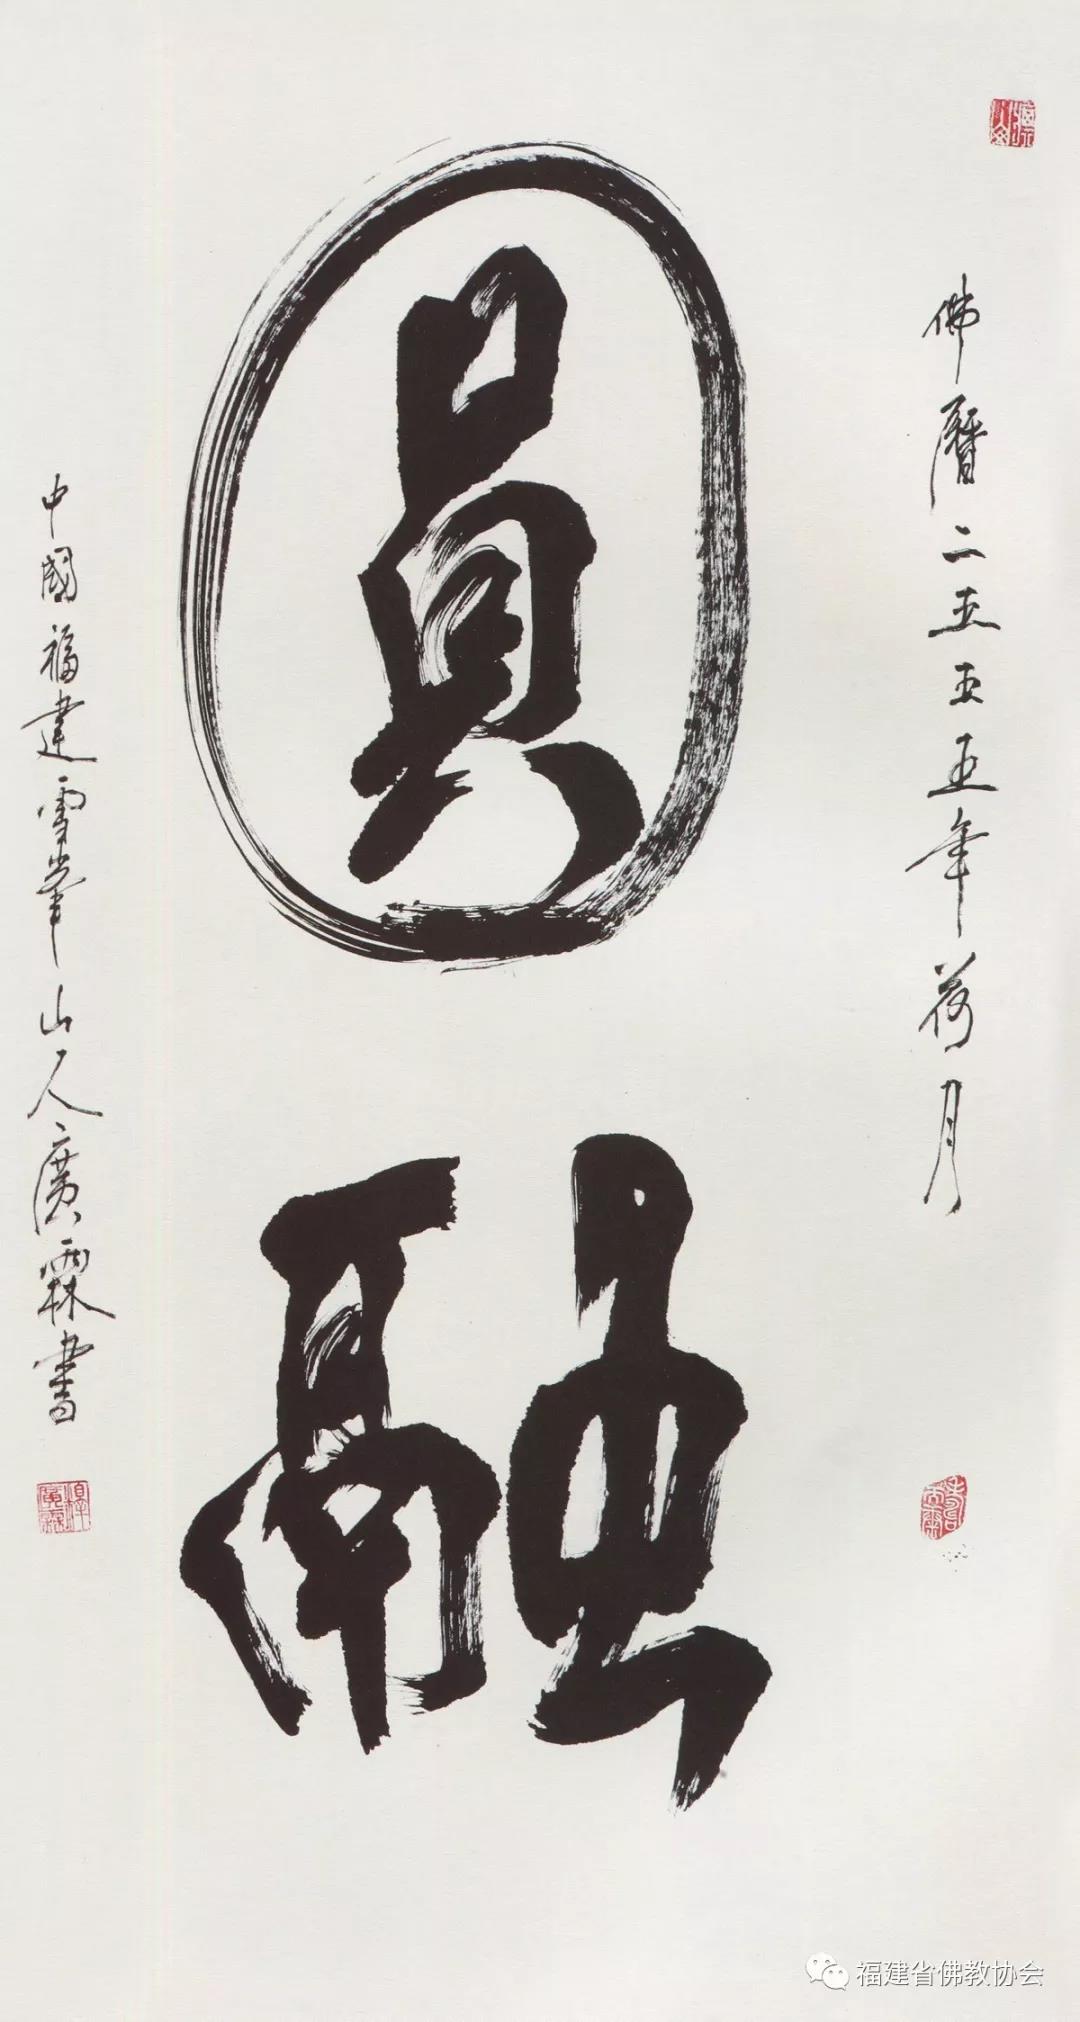 佛曆二五五五年荷月
圓融
中國福建雪峯山人廣霖書
福建省佛教协会